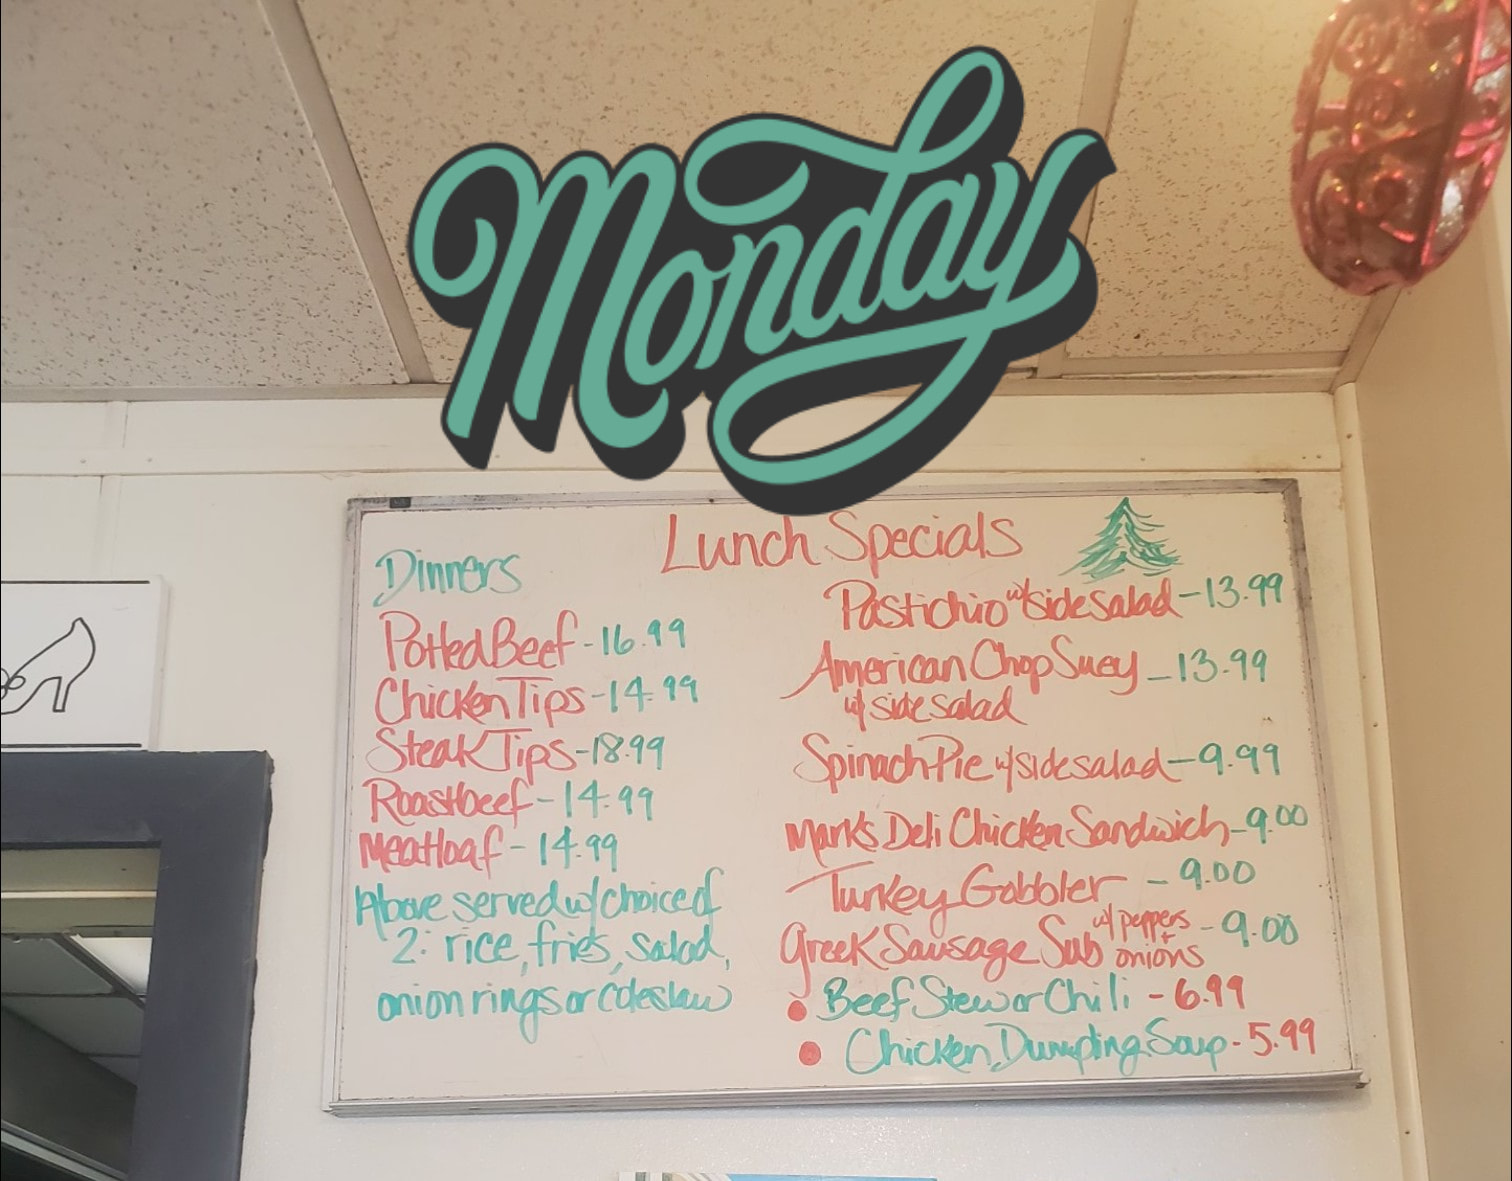 Monday
Lunch Specials
Dinners
Potted Beef - 16.99
Chicken Tips - 14.99
Steak Tips - 18.99
Roastbeef - 14.99
Meatloaf - 14.99
Above served w/ choice of
2: rice, fries, salad,
onion rings or coleslaw
Pastichio w/ side salad - 13.99
American Chop Suey - 13.99
w/ side salad
Spinach Pie w/ side salad - 9.99
Mark's Deli Chicken Sandwich - 9.00
Turkey Gobbler - 9.00
Greek Sausage Sub w/ peppers + onions - 9.00
• Beef Stew or Chili - 6.99
• Chicken Dumpling Soup - 5.99